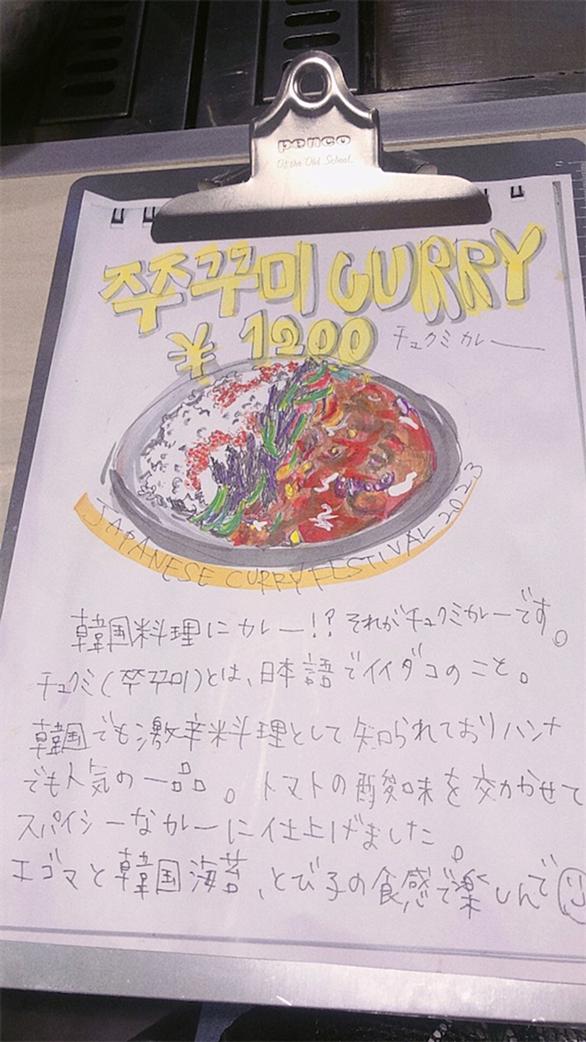 penco
At the Old School.
쭈꾸미 CURRY
¥1200 チュクミカレー
JAPANESE CURRY FESTIVAL 2023
韓国料理にカレー!? それがチュクミカレーです。
チュクミ(쭈꾸미)とは、日本語でイイダコのこと。
韓国でも激辛料理として知られておりハンナ
でも人気の一品。トマトの酸味を交かせて
スパイシーなカレーに仕上げました。
エゴマと韓国海苔、とび子の食感で楽しんで